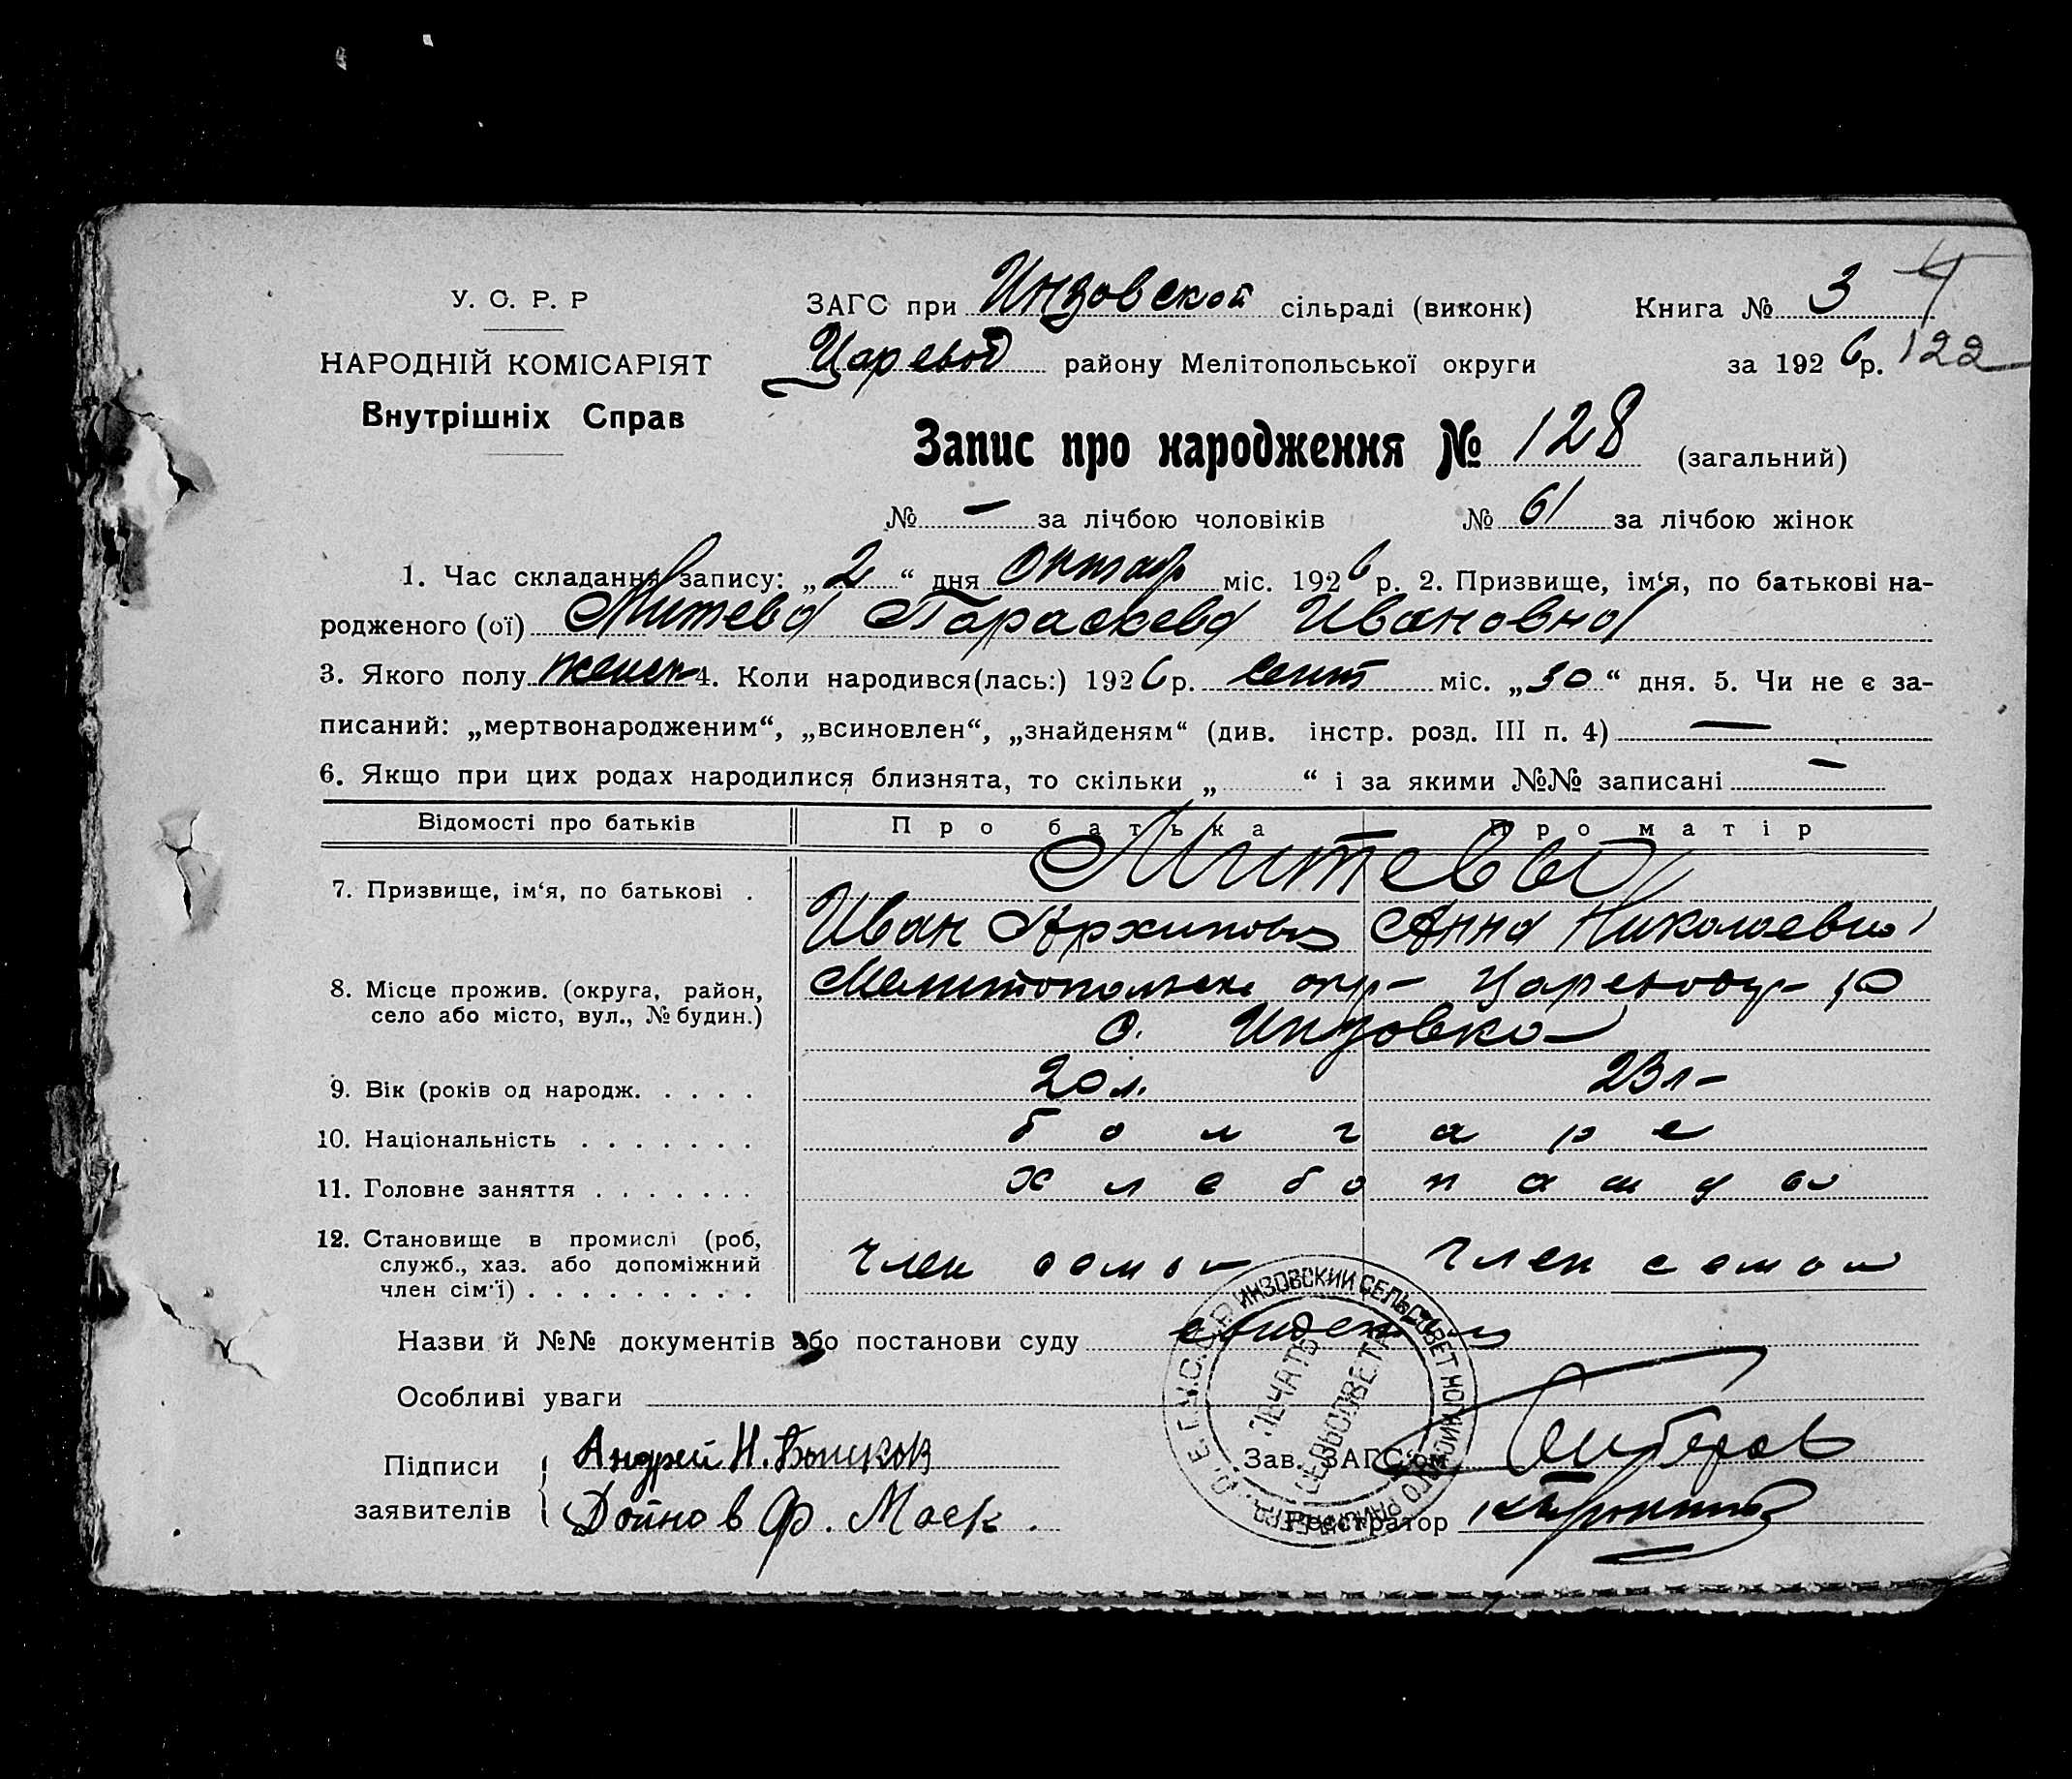 У. С. Р. Р
НАРОДНІЙ КОМІСАРІЯТ
Внутрішніх Справ
ЗАГС при Инзовской сільраді (виконк)
Книга № 3 4
Царевод району Мелітопольської округи
за 1926 р. 122
Запис про народження № 128 (загальний)
№ — за лічбою чоловіків № 61 за лічбою жінок
1. Час складання запису: „2“ дня октяб міс. 1926 р. 2. Призвище, ім‘я, по батькові на-
родженого (ої) Митева Параскева Ивановна
3. Якого полу женск 4. Коли народився(лась:) 1926 р. сент міс. „30“ дня. 5. Чи не є за-
писаний: „мертвонародженим“, „всиновлен“, „знайденям“ (див. інстр. розд. III п. 4) —
6. Якщо при цих родах народилися близнята, то скільки „ “ і за якими №№ записані —
Відомості про батьків Про батька Про матір
7. Призвище, ім‘я, по батькові . Митевы
Иван Архипович Анна Николаевна
8. Місце прожив. (округа, район, село або місто, вул., № будин.) Мелитопольск окр- Царевод
с. Инзовка
9. Вік (років од народж. . . . . 20 л. 23 л-
10. Національність . . . . . . . болгаре
11. Головне заняття . . . . . . . хлебопашцы
12. Становище в промислі (роб,
служб., хаз. або допоміжний
член сім‘ї) . . . . . . . . . член семьи член семьи
Назви й №№ документів або постанови суду
Особливі уваги
Підписи
заявителів
Андрей Н.
Дойнов Ф.
Зав. ЗАГС‘ом
Реєстратор
ИНЗОВСКИЙ СЕЛЬСОВЕТ
ПЕЧАТЬ
СЕЛЬСОВЕТА